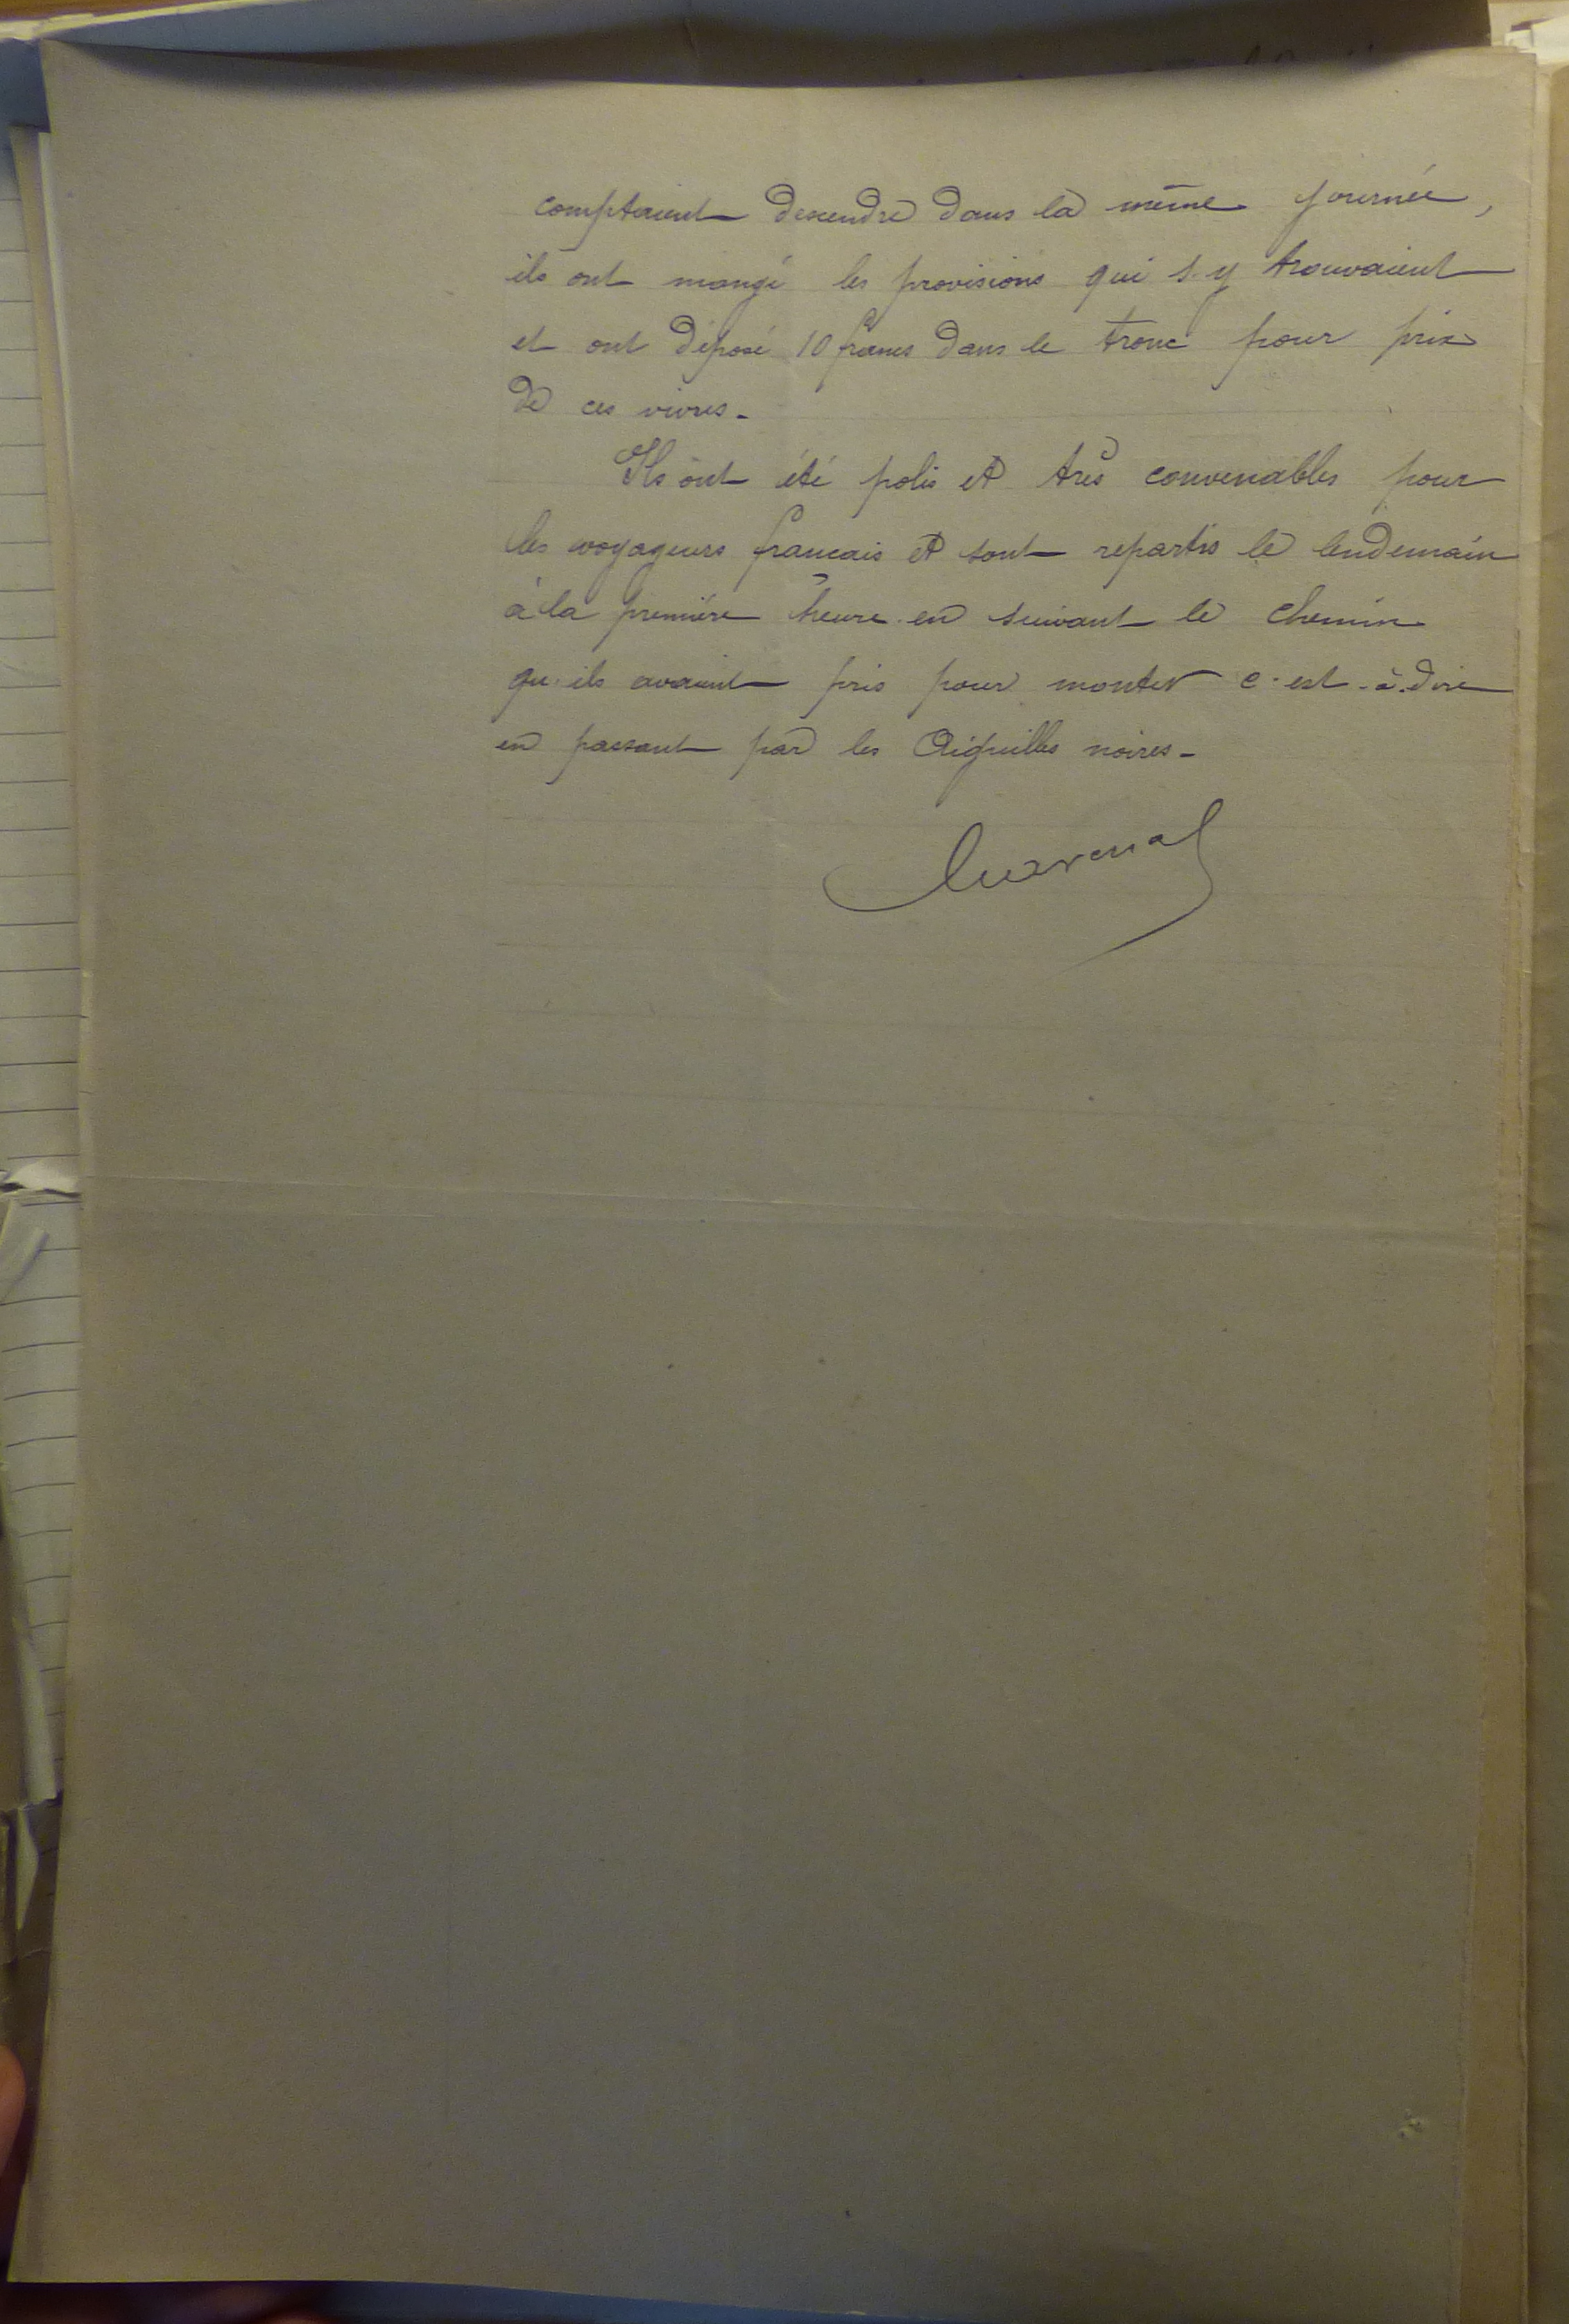 comptaient descendre dans la même journée,
ils ont mangé les provisions qui s'y trouvaient
et ont déposé 10 francs dans le tronc pour prix
de ces vivres.
Ils ont été polis et très convenables pour
les voyageurs francais et sont repartis le lendemain
à la première heure en suivant le chemin
qu'ils avaient pris pour monter c'est-à-dire
en passant par les Aiguilles noires.